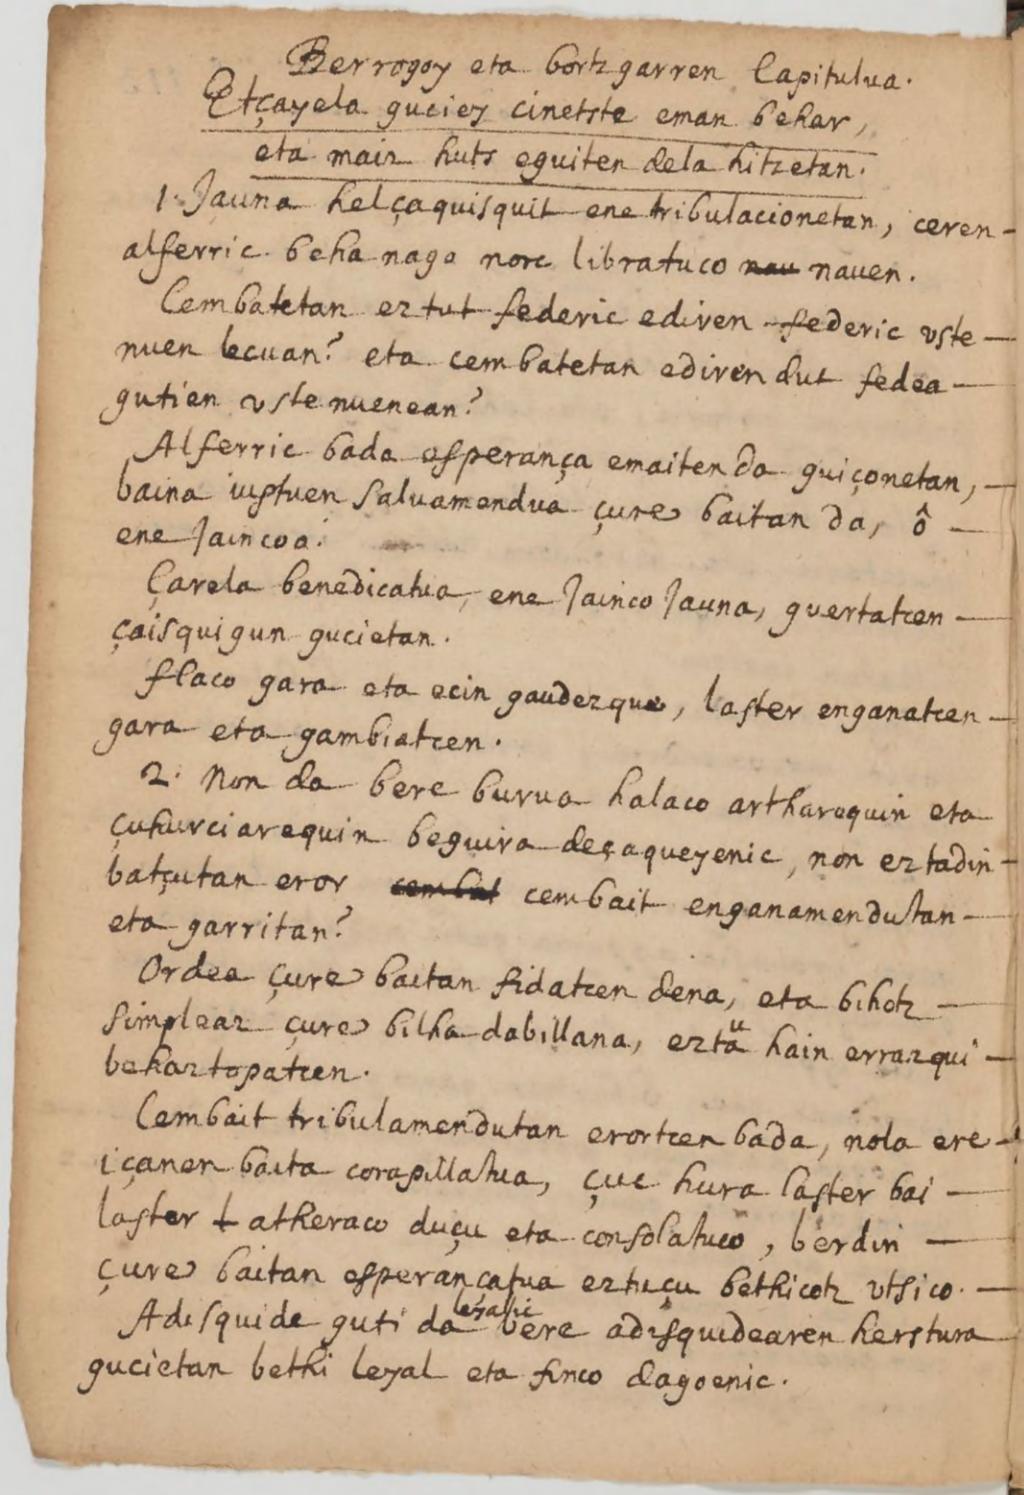 Berrogoy eta bortzgarren Capitulua.
Etçayela guciey cinetste eman behar,
eta maiz huts eguiten dela hitzetan.
1. Jauna helçaquisquit ene tribulacionetan, ceren
alferric beha nago norc libratuco nau nauen.
Cembatetan eztut federic ediren federic uste
nuen lecuan? eta cembatetan ediren dut fedea
gutien uste nuenean?
Alferric bada esperança emaiten da guiçonetan,
baina iustuen salvamendua çure baitan da, ô
ene Jaincoa.
Çarela benedicatua, ene Jainco Jauna, guertatcen
çaisquigun gucietan.
flaco gara eta ecin gaudezque, laster enganatcen
gara eta gambiatcen.
2. Non da bere burua halaco artharequin eta
çuhurciarequin beguira deçaqueyenic, non eztadin
batçutan eror cembat cembait enganamendutan
eta garritan?
Ordea çure baitan fidatcen dena, eta bihotz
simpleaz çure bilha dabillana, eztau hain errazqui
behaztopatcen.
Cembait tribulamendutan erortcen bada, nola ere
içanen baita corapillatua, çuc hura laster bai
laster t atheraco duçu eta consolatuco, berdin
çure baitan esperançatua eztuçu bethicotz utsico.
Adisquide guti da leyalic bere adisquidearen herstura
gucietan bethi leyal eta finco dagoenic.